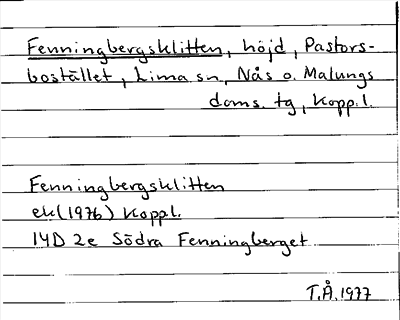 Fenningbergsklitten, höjd, Pastors-
bostället, Lima sn, Nås o. Malungs
doms. tg, Kopp.l.
Fenningbergsklitten
ek(1976) Koppl.
14D 2e Södra Fenningberget
T.Å. 1977